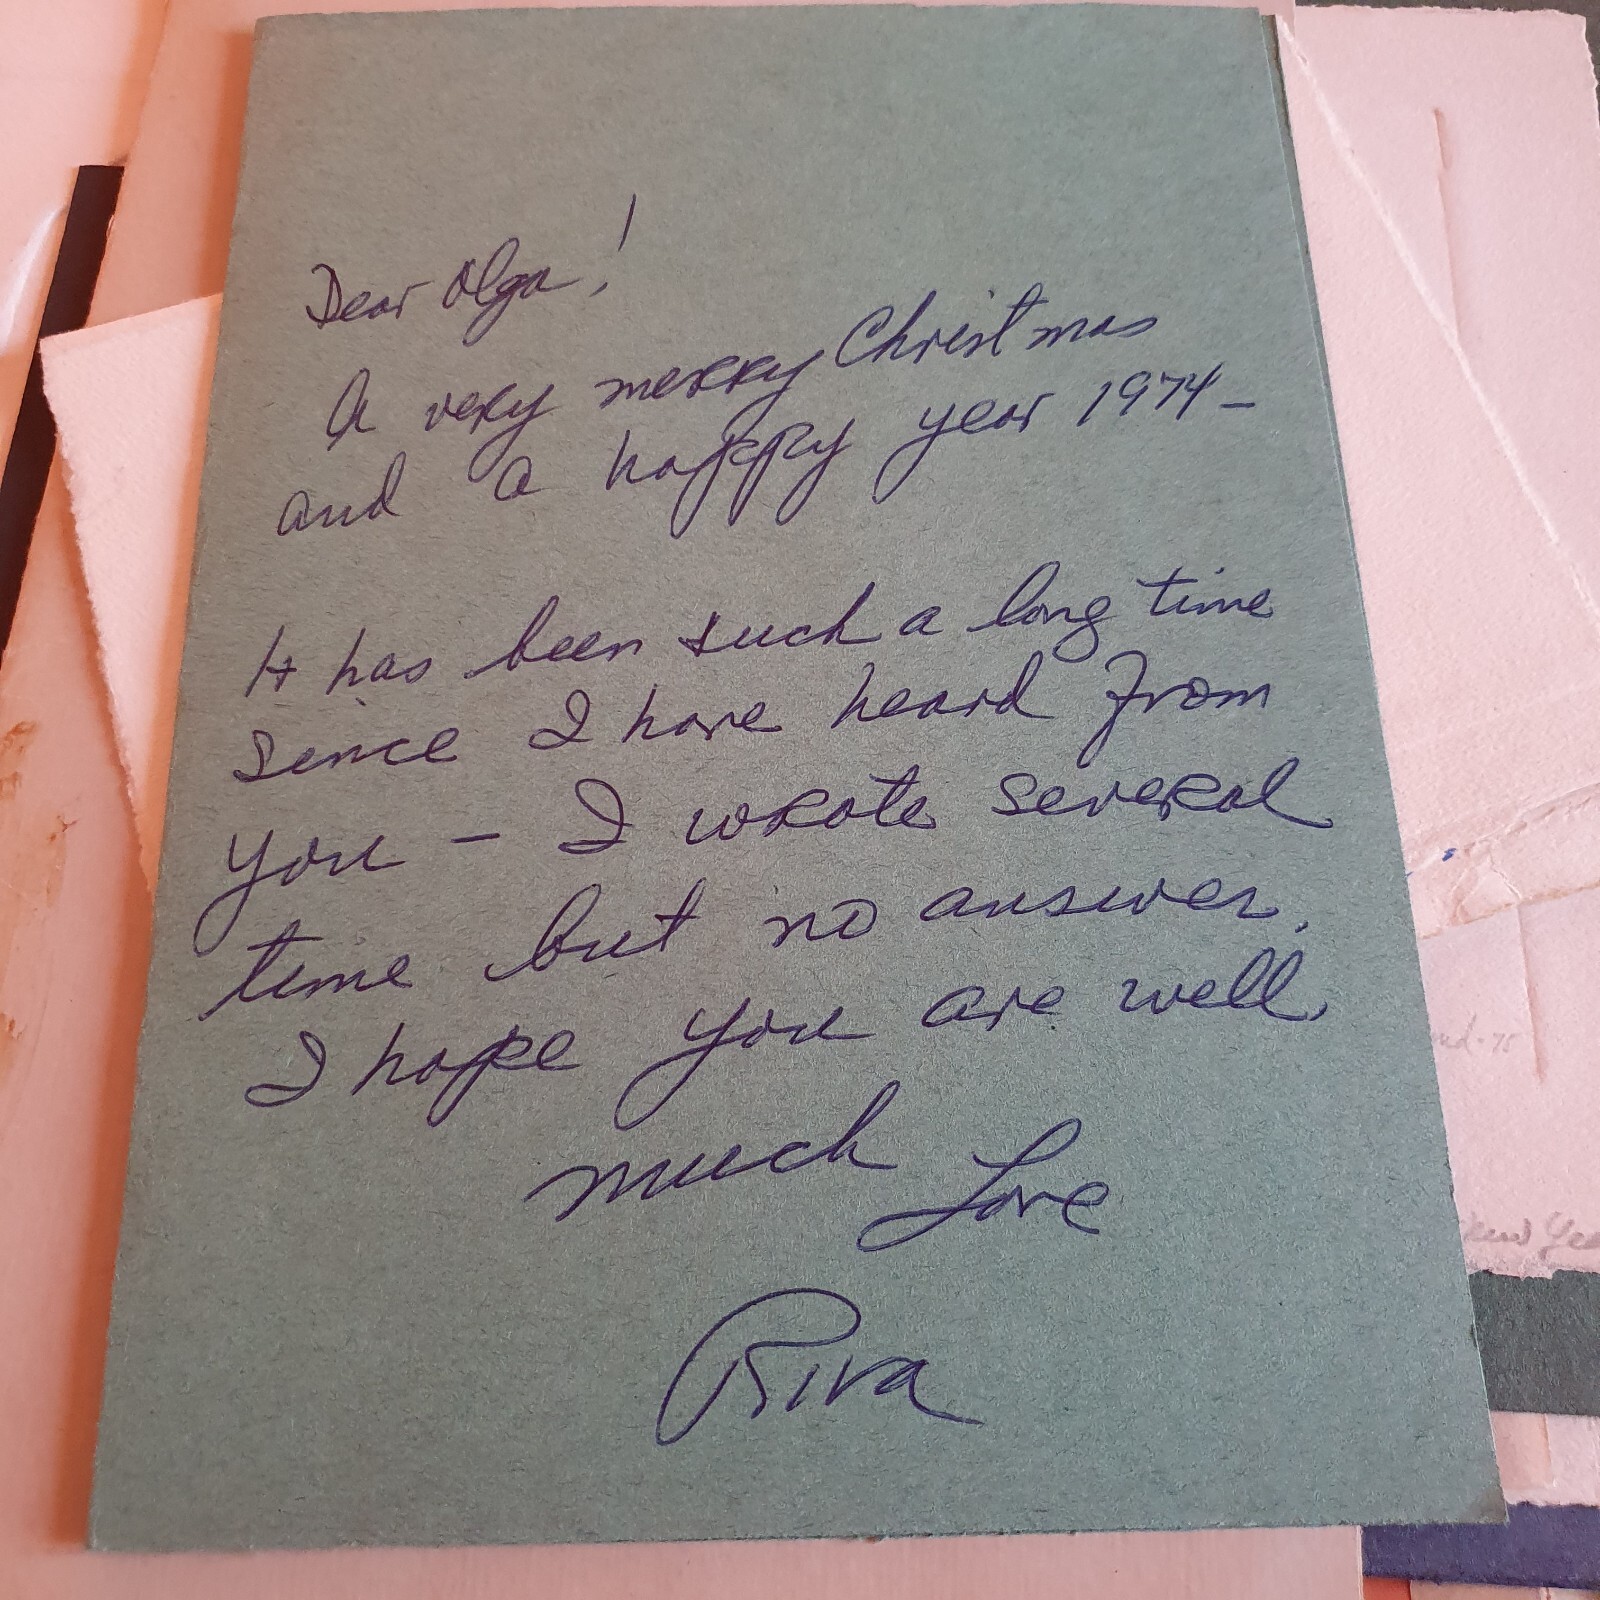 Dear Olga!
A very merry Christmas
and a happy year 1974 –
It has been such a long time
since I have heard from
you – I wrote several
time but no answer.
I hope you are well.
much Love
Riva
nd-75
New Yea